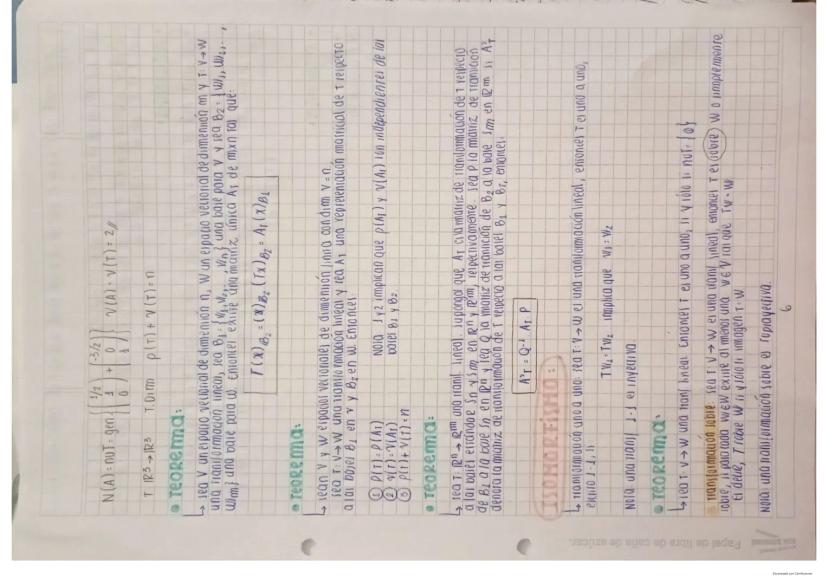 N(A) = nuT = gen {(1/2 1 0) + (-3/2 0 1)} ν(A) = ν(T) = 2 //
T: ℝ³ → ℝ³ T. Dim ρ(T) + ν(T) = n
• TEOREMA:
↳ sea V un espacio vectorial de dimensión n, W un espacio vectorial de dimensión m y T: V→W
una transformación lineal, sea B₁ = {v₁, v₂, ..., vₙ} una base para V y sea B₂ = {w₁, w₂, ...,
wm} una base para W. Entonces existe una matriz única A_T de mxn tal que:
T(x)_B₂ = (x)_B₂ (Tx)_B₂ = A_T (x)_B₁
• TEOREMA:
↳ sean V y W espacios vectoriales de dimensión finita con dim V = n
sea T: V→W una transformación lineal y sea A_T una representación matricial de T respecto
a las bases B₁ en V y B₂ en W. Entonces:
① ρ(T) = ρ(A_T)
② ν(T) = ν(A_T)
③ ρ(T) + ν(T) = n
Nota 1 y 2 implican que ρ(A_T) y ν(A_T) son independientes de las
bases B₁ y B₂
• TEOREMA:
↳ sea T: ℝⁿ → ℝᵐ una transf. lineal. supongas que A_T es la matriz de transformación de T respecto
a las bases estándar Sn y Sm en ℝⁿ y ℝᵐ, respectivamente. sea P la matriz de transición
de B₁ a la base Sn en ℝⁿ y sea Q la matriz de transición de B₂ a la base Sm en ℝᵐ si A'_T
denota la matriz de transformación de T respecto a las bases B₁ y B₂, entonces:
A'_T = Q⁻¹ A_T P
ISOMORFISMO:
↳ transformación uno a uno: sea T: V→W es una transformación lineal, entonces T es uno a uno,
escrito 1-1, si
Tv₁ = Tv₂ implica que v₁ = v₂
Nota una transf. 1-1 es inyectiva
• TEOREMA:
↳ sea T: V→W una tranf. lineal. Entonces T es uno a uno, si y sólo si nuT = {0}
• Transformación sobre: sea T: V→W es una transf. lineal, entonces T es sobre W o simplemente
sobre, si para toda w∈W existe al menos una v∈V tal que Tv = w
Es decir, T sobre W si y sólo si imagen T = W
Nota una transformación sobre es suprayectiva.
6
Papel de fibra de caña de azúcar.